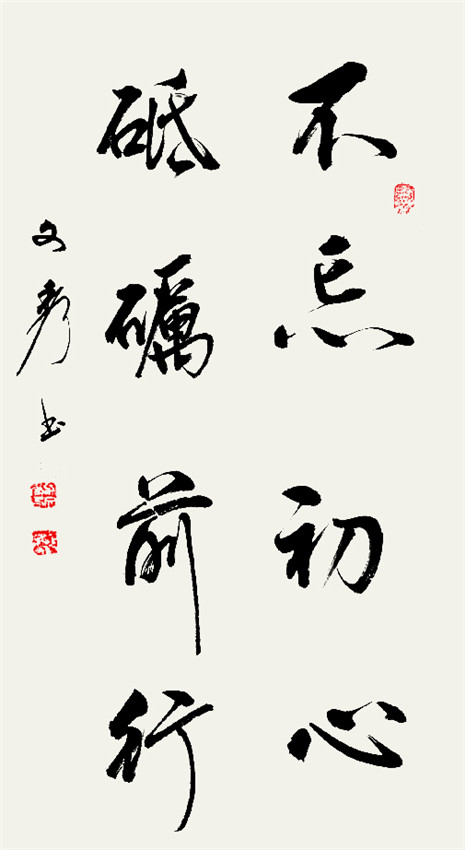 不忘初心
砥礪前行
文秀书